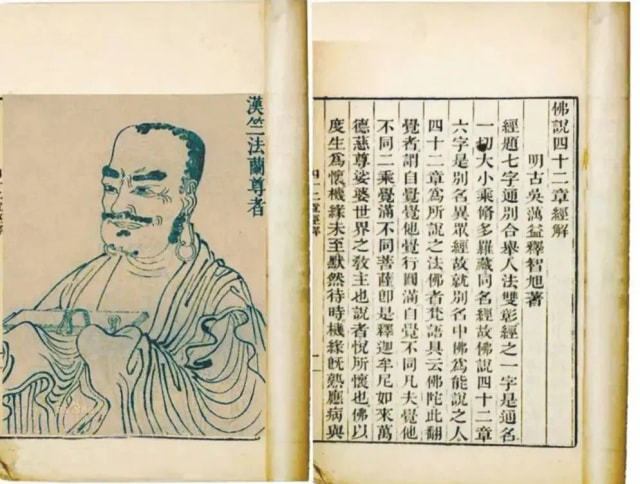 佛說四十二章經解
明古吳蕅益釋智旭著
經題七字通別合舉人法雙彰經之一字是通名
一切大小乘脩多羅藏同名經故佛說四十二章
六字是別名異眾經故就別名中佛爲能說之人
四十二章爲所說之法佛者梵語具云佛陀此翻
覺者謂自覺覺他覺行圓滿自覺不同凡夫覺他
不同二乘覺滿不同菩薩卽是釋迦牟尼如來萬
德慈尊娑婆世界之敎主也說者悅所懷也佛以
度生爲懷機緣未至默然待時機緣旣熟應病與
漢竺法蘭尊者